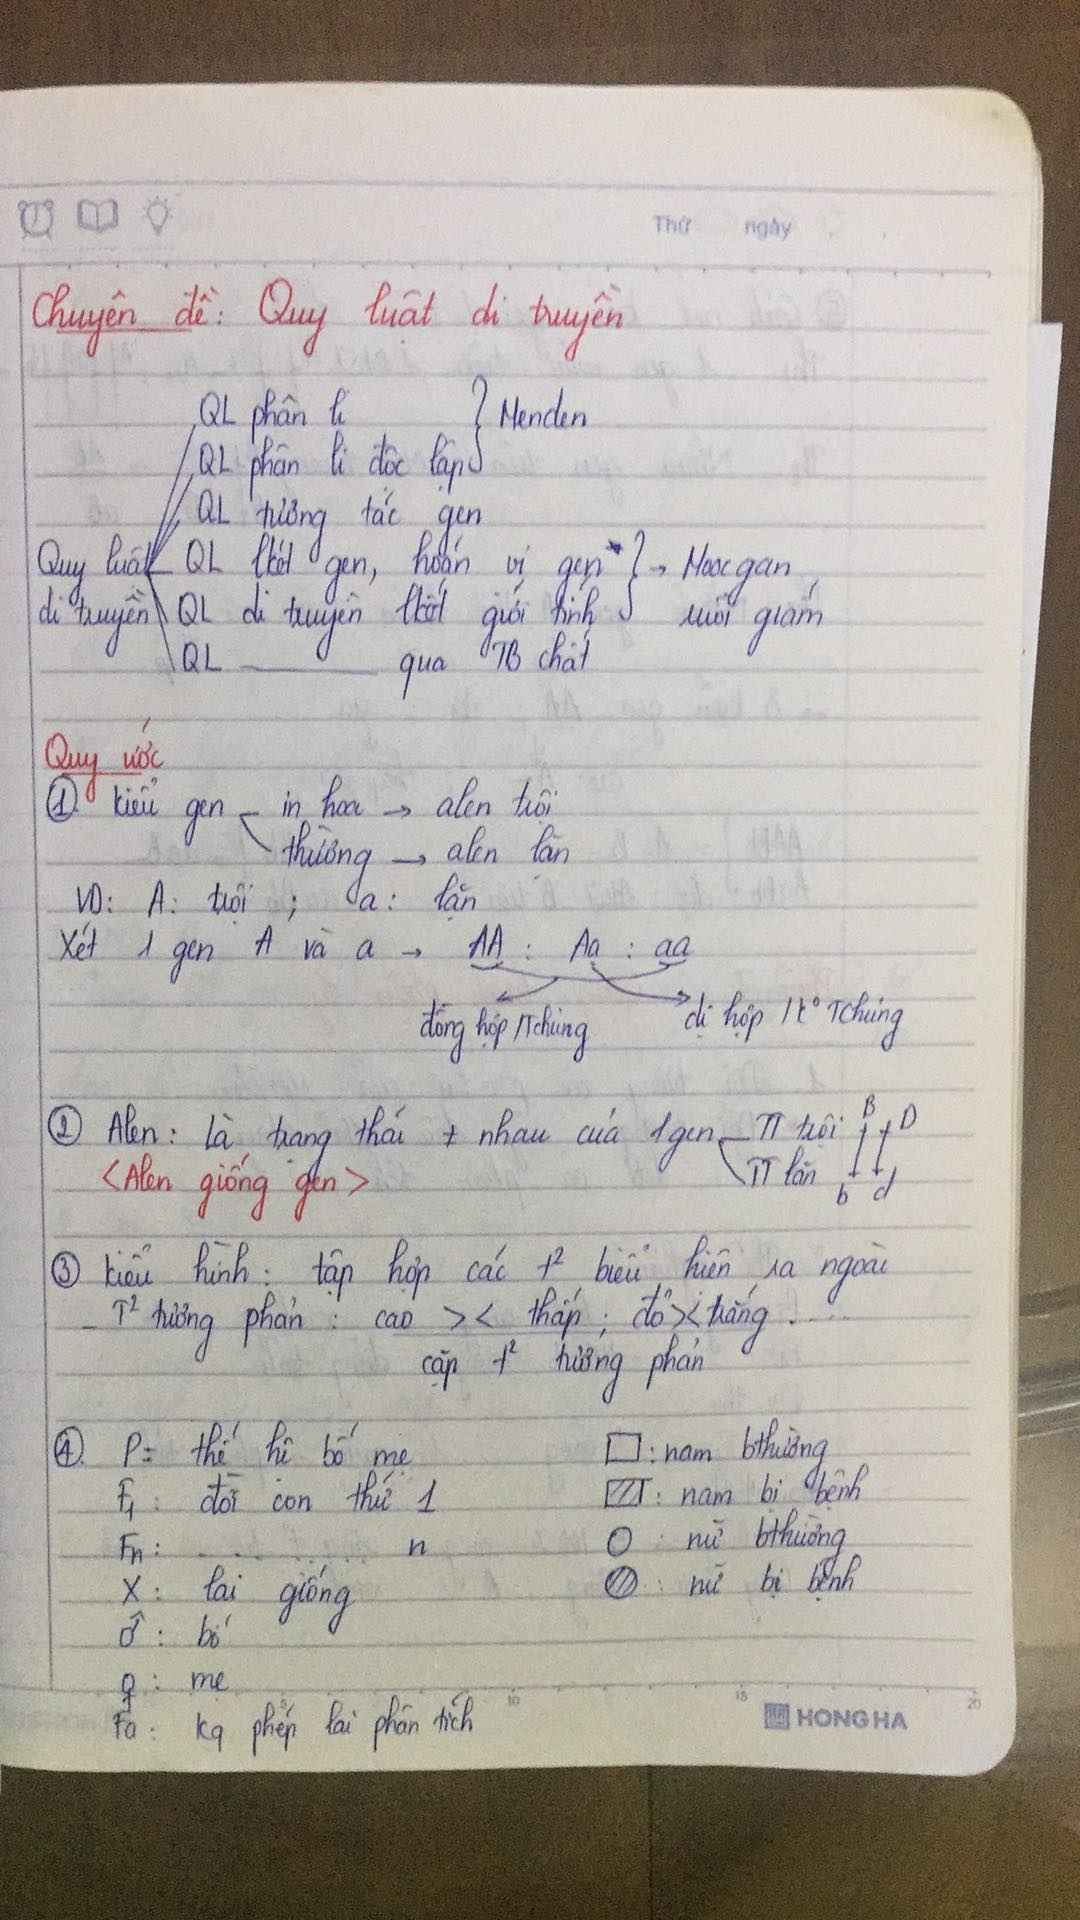 Thứ ngày
Chuyên đề: Quy luật di truyền
QL phân li
QL phân li độc lập } Menden
QL tương tác gen
Quy luật QL lkết gen, hoán vị gen } → Moocgan
di truyền QL di truyền lkết giới tính ruồi giấm
QL ——— qua TB chất
Quy ước
① kiểu gen in hoa → alen trội
thường → alen lặn
VD: A: trội ; a: lặn
Xét 1 gen A và a → AA : Aa : aa
đồng hợp /Tchủng dị hợp / to Tchủng
② Alen: là trạng thái ≠ nhau của 1 gen TT trội B D
<Alen giống gen> TT lặn b d
③ kiểu hình: tập hợp các t² biểu hiện ra ngoài
- T² tương phản: cao >< thấp; đỏ >< trắng .....
cặp t² tương phản
④ P= thế hệ bố mẹ □: nam bthường
F1: đời con thứ 1 ▨: nam bị bệnh
Fn: ........... n ○: nữ bthường
X: lai giống nữ bị bệnh
♂: bố
♀: mẹ
Fa: kq phép lai phân tích
5 10 15 20
HONG HA